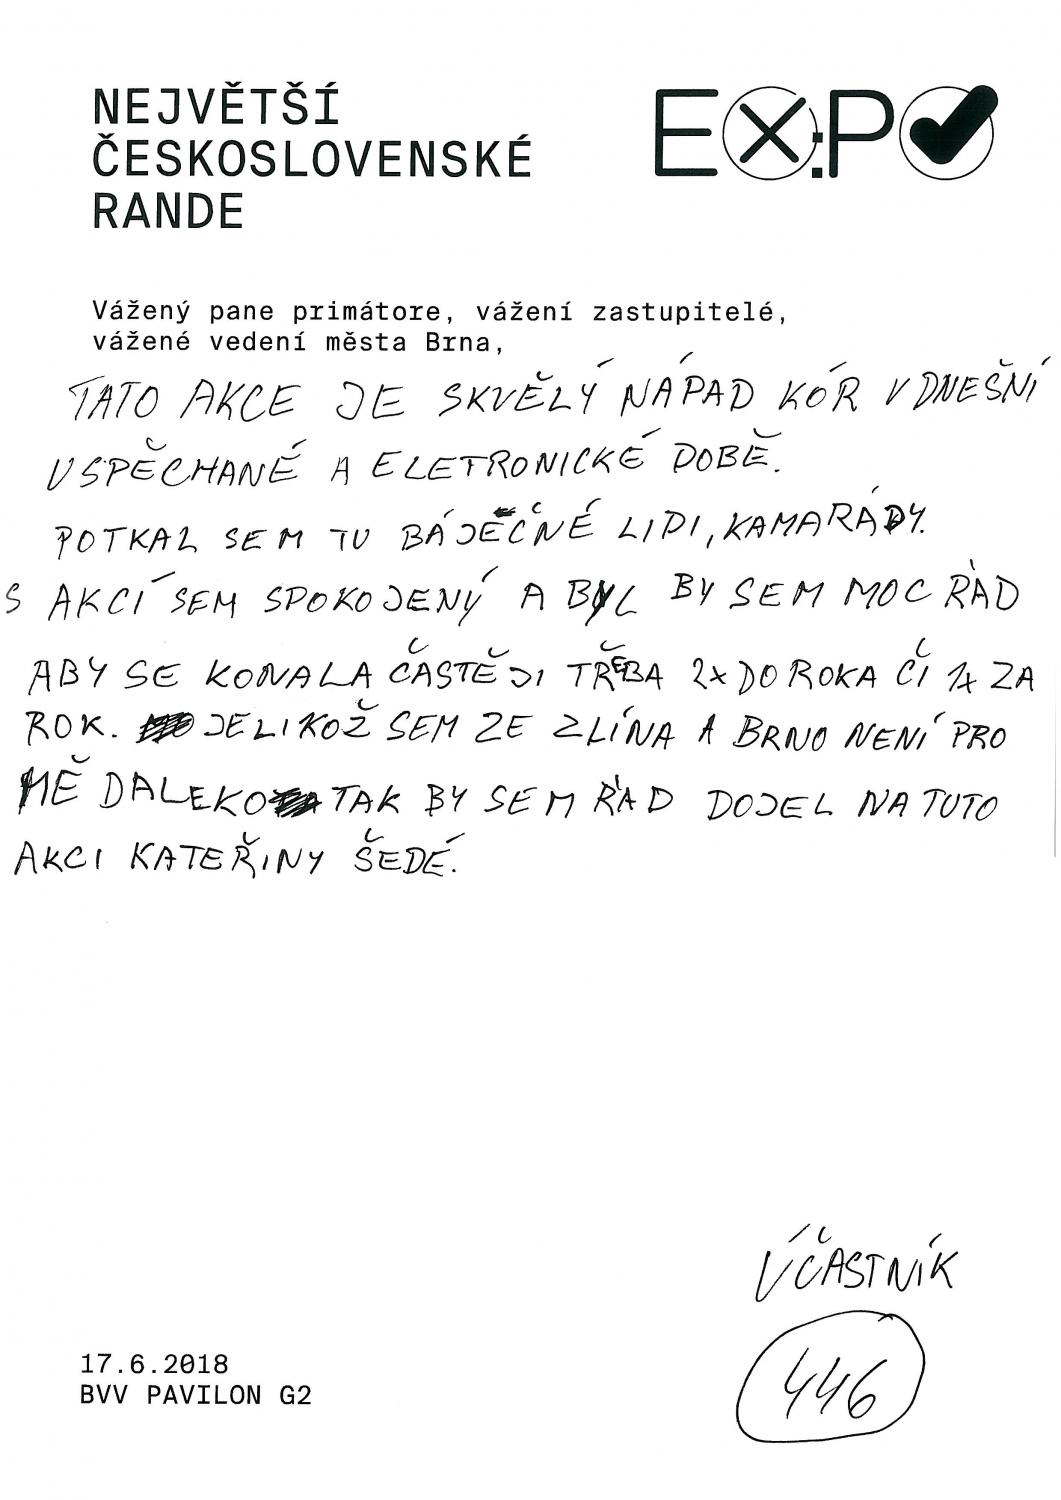 NEJVĚTŠÍ
ČESKOSLOVENSKÉ
RANDE
EX:PO
Vážený pane primátore, vážení zastupitelé,
vážené vedení města Brna,
TATO AKCE JE SKVĚLÝ NÁPAD KÓR V DNEŠNÍ
USPĚCHANÉ A ELETRONICKÉ DOBĚ.
POTKAL SEM TU BÁJEČNÉ LIDI, KAMARÁDY.
S AKCÍ SEM SPOKOJENÝ A BYL BY SEM MOC RÁD
ABY SE KONALA ČASTĚJI TŘEBA 2x DO ROKA ČI 1x ZA
ROK. JELIKOŽ SEM ZE ZLÍNA A BRNO NENÍ PRO
MĚ DALEKO TAK BY SEM RÁD DOJEL NA TUTO
AKCI KATEŘINY ŠEDÉ.
ÚČASTNÍK
446
17.6.2018
BVV PAVILON G2